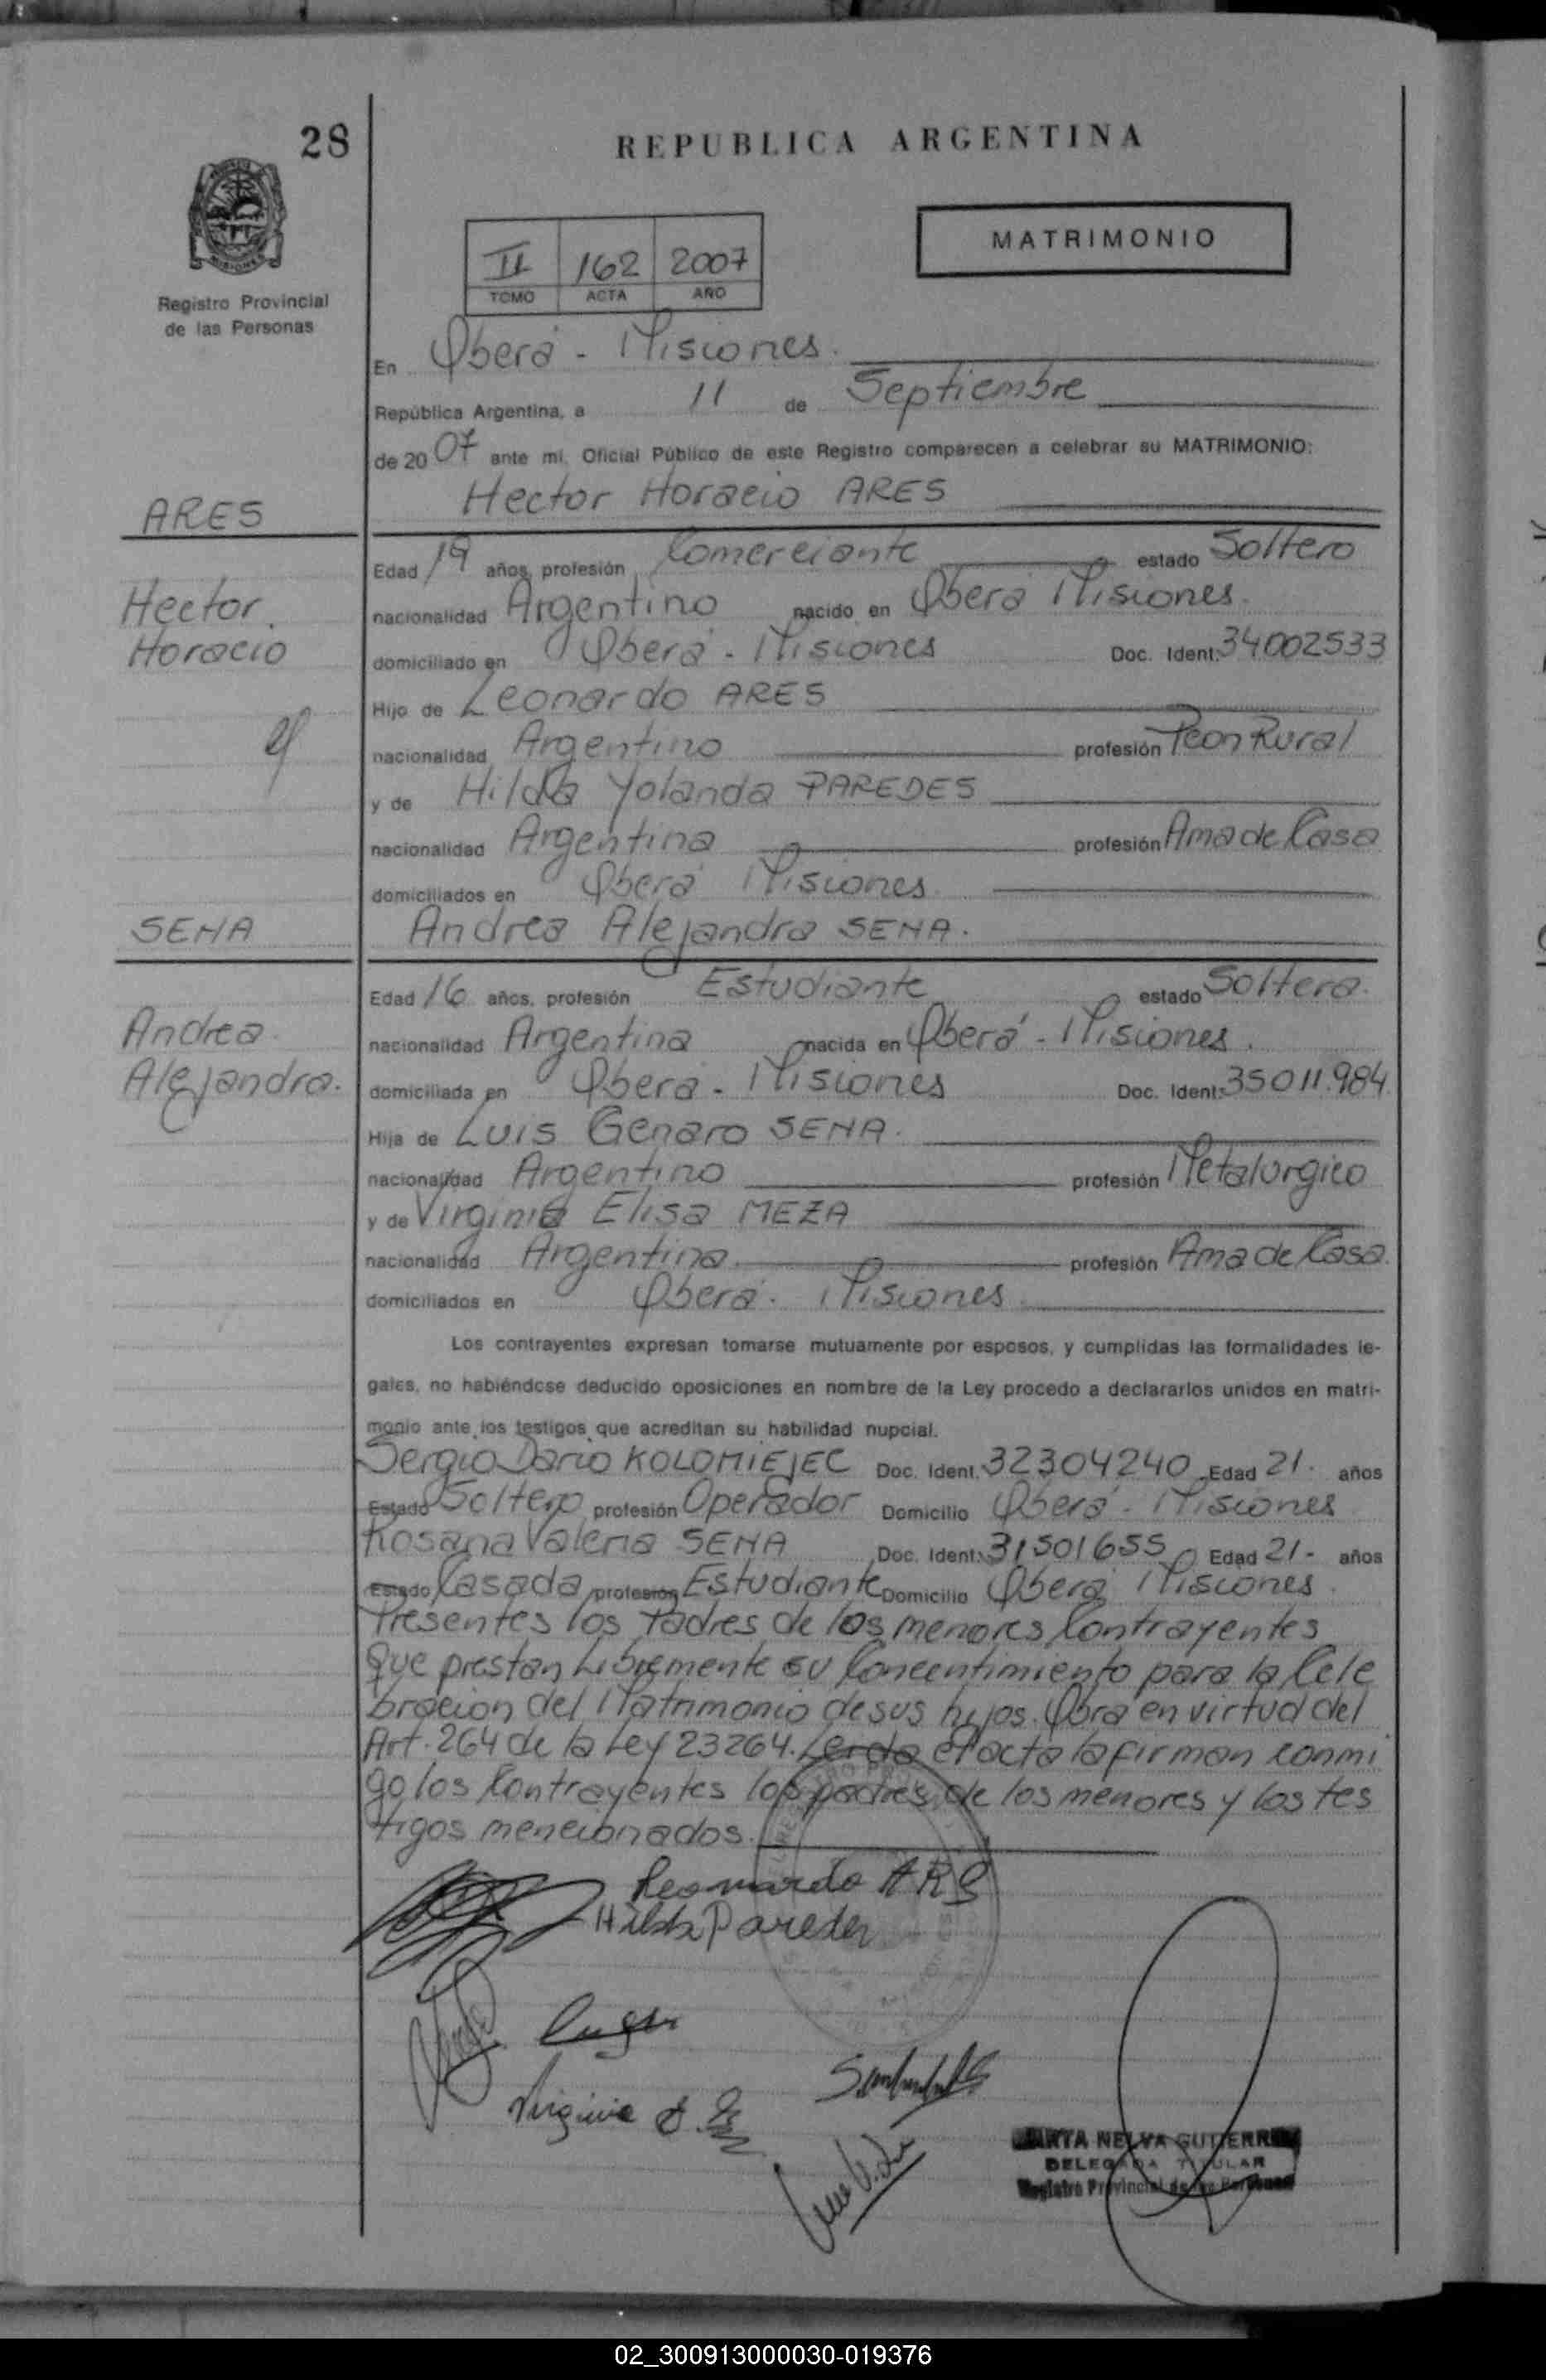 28
REPUBLICA ARGENTINA
MATRIMONIO
II 162 2007
TOMO ACTA AÑO
MISIONES
Registro Provincial
de las Personas
En Oberá - Misiones.
República Argentina, a 11 de Septiembre
de 2007 ante mi, Oficial Público de este Registro comparecen a celebrar su MATRIMONIO:
Hector Horacio ARES
ARES
Edad 19 años, profesión Comerciante estado Soltero
Hector
nacionalidad Argentino nacido en Oberá Misiones.
Horacio
domiciliado en Oberá - Misiones Doc. Ident: 34.002533
Hijo de Leonardo ARES
nacionalidad Argentino profesión Peon Rural
y de Hilda Yolanda PAREDES
nacionalidad Argentina profesión Ama de Casa
domiciliados en Oberá Misiones
SENA
Andrea Alejandra SENA.
Edad 16 años, profesión Estudiante estado Soltera.
Andrea
nacionalidad Argentina nacida en Oberá - Misiones.
Alejandra.
domiciliada en Oberá - Misiones Doc. Ident: 35011.984
Hija de Luis Genaro SENA.
nacionalidad Argentino profesión Metalurgico
y de Virginia Elisa MEZA
nacionalidad Argentina. profesión Ama de Casa.
domiciliados en Oberá. Misiones.
Los contrayentes expresan tomarse mutuamente por esposos, y cumplidas las formalidades le-
gales, no habiéndose deducido oposiciones en nombre de la Ley procedo a declararlos unidos en matri-
monio ante los testigos que acreditan su habilidad nupcial.
Sergio Dario KOLOMIEJEC Doc. Ident. 32304240 Edad 21. años
Estado Soltero profesión Operador Domicilio Oberá - Misiones
Rosana Valeria SENA Doc. Ident: 31501655 Edad 21- años
Estado Casada profesión Estudiante Domicilio Oberá Misiones.
Presentes los Padres de los menores Contrayentes
que prestan Libremente su Concentimiento para la Cele
bracion del Matrimonio de sus hijos. Obra en virtud del
Art. 264 de la Ley 23264. Leida el acta la firman conmi
go los Contrayentes los padres de los menores y los tes
tigos mencionados.
Leonardo ARS
Hilda Paredes
Virginia
MARTA NELVA GUTIERREZ
DELEGADA TITULAR
Registro Provincial de las Personas
02_300913000030-019376